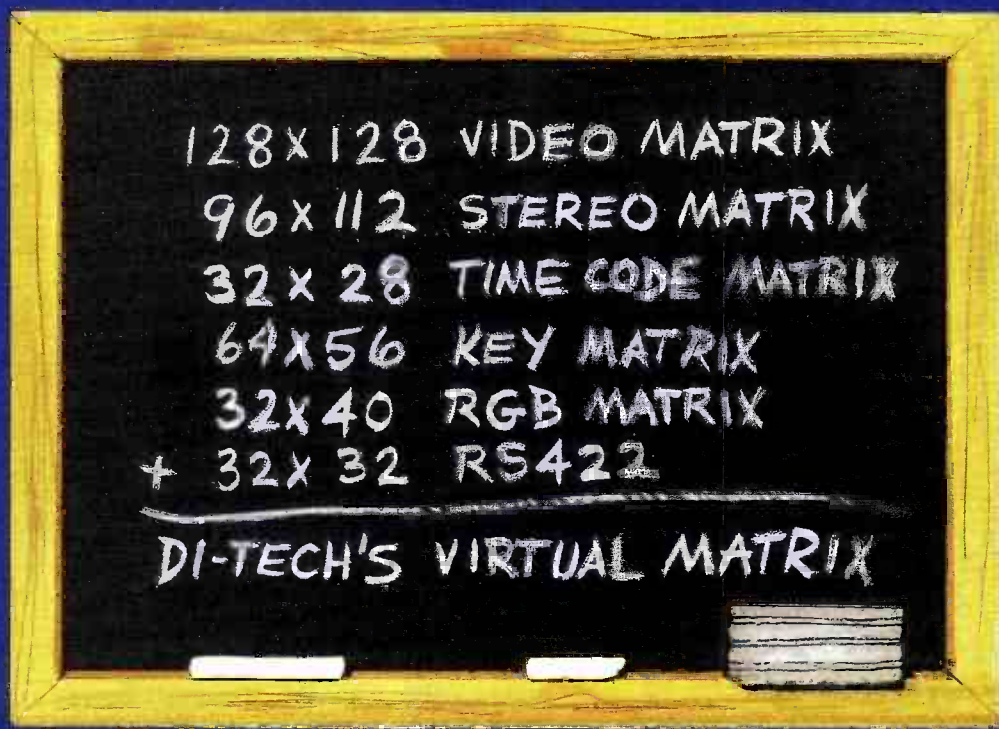 128 X 128 VIDEO MATRIX
96 X 112 STEREO MATRIX
32 X 28 TIME CODE MATRIX
64 X 56 KEY MATRIX
32 X 40 RGB MATRIX
+ 32 X 32 RS422
DI-TECH'S VIRTUAL MATRIX